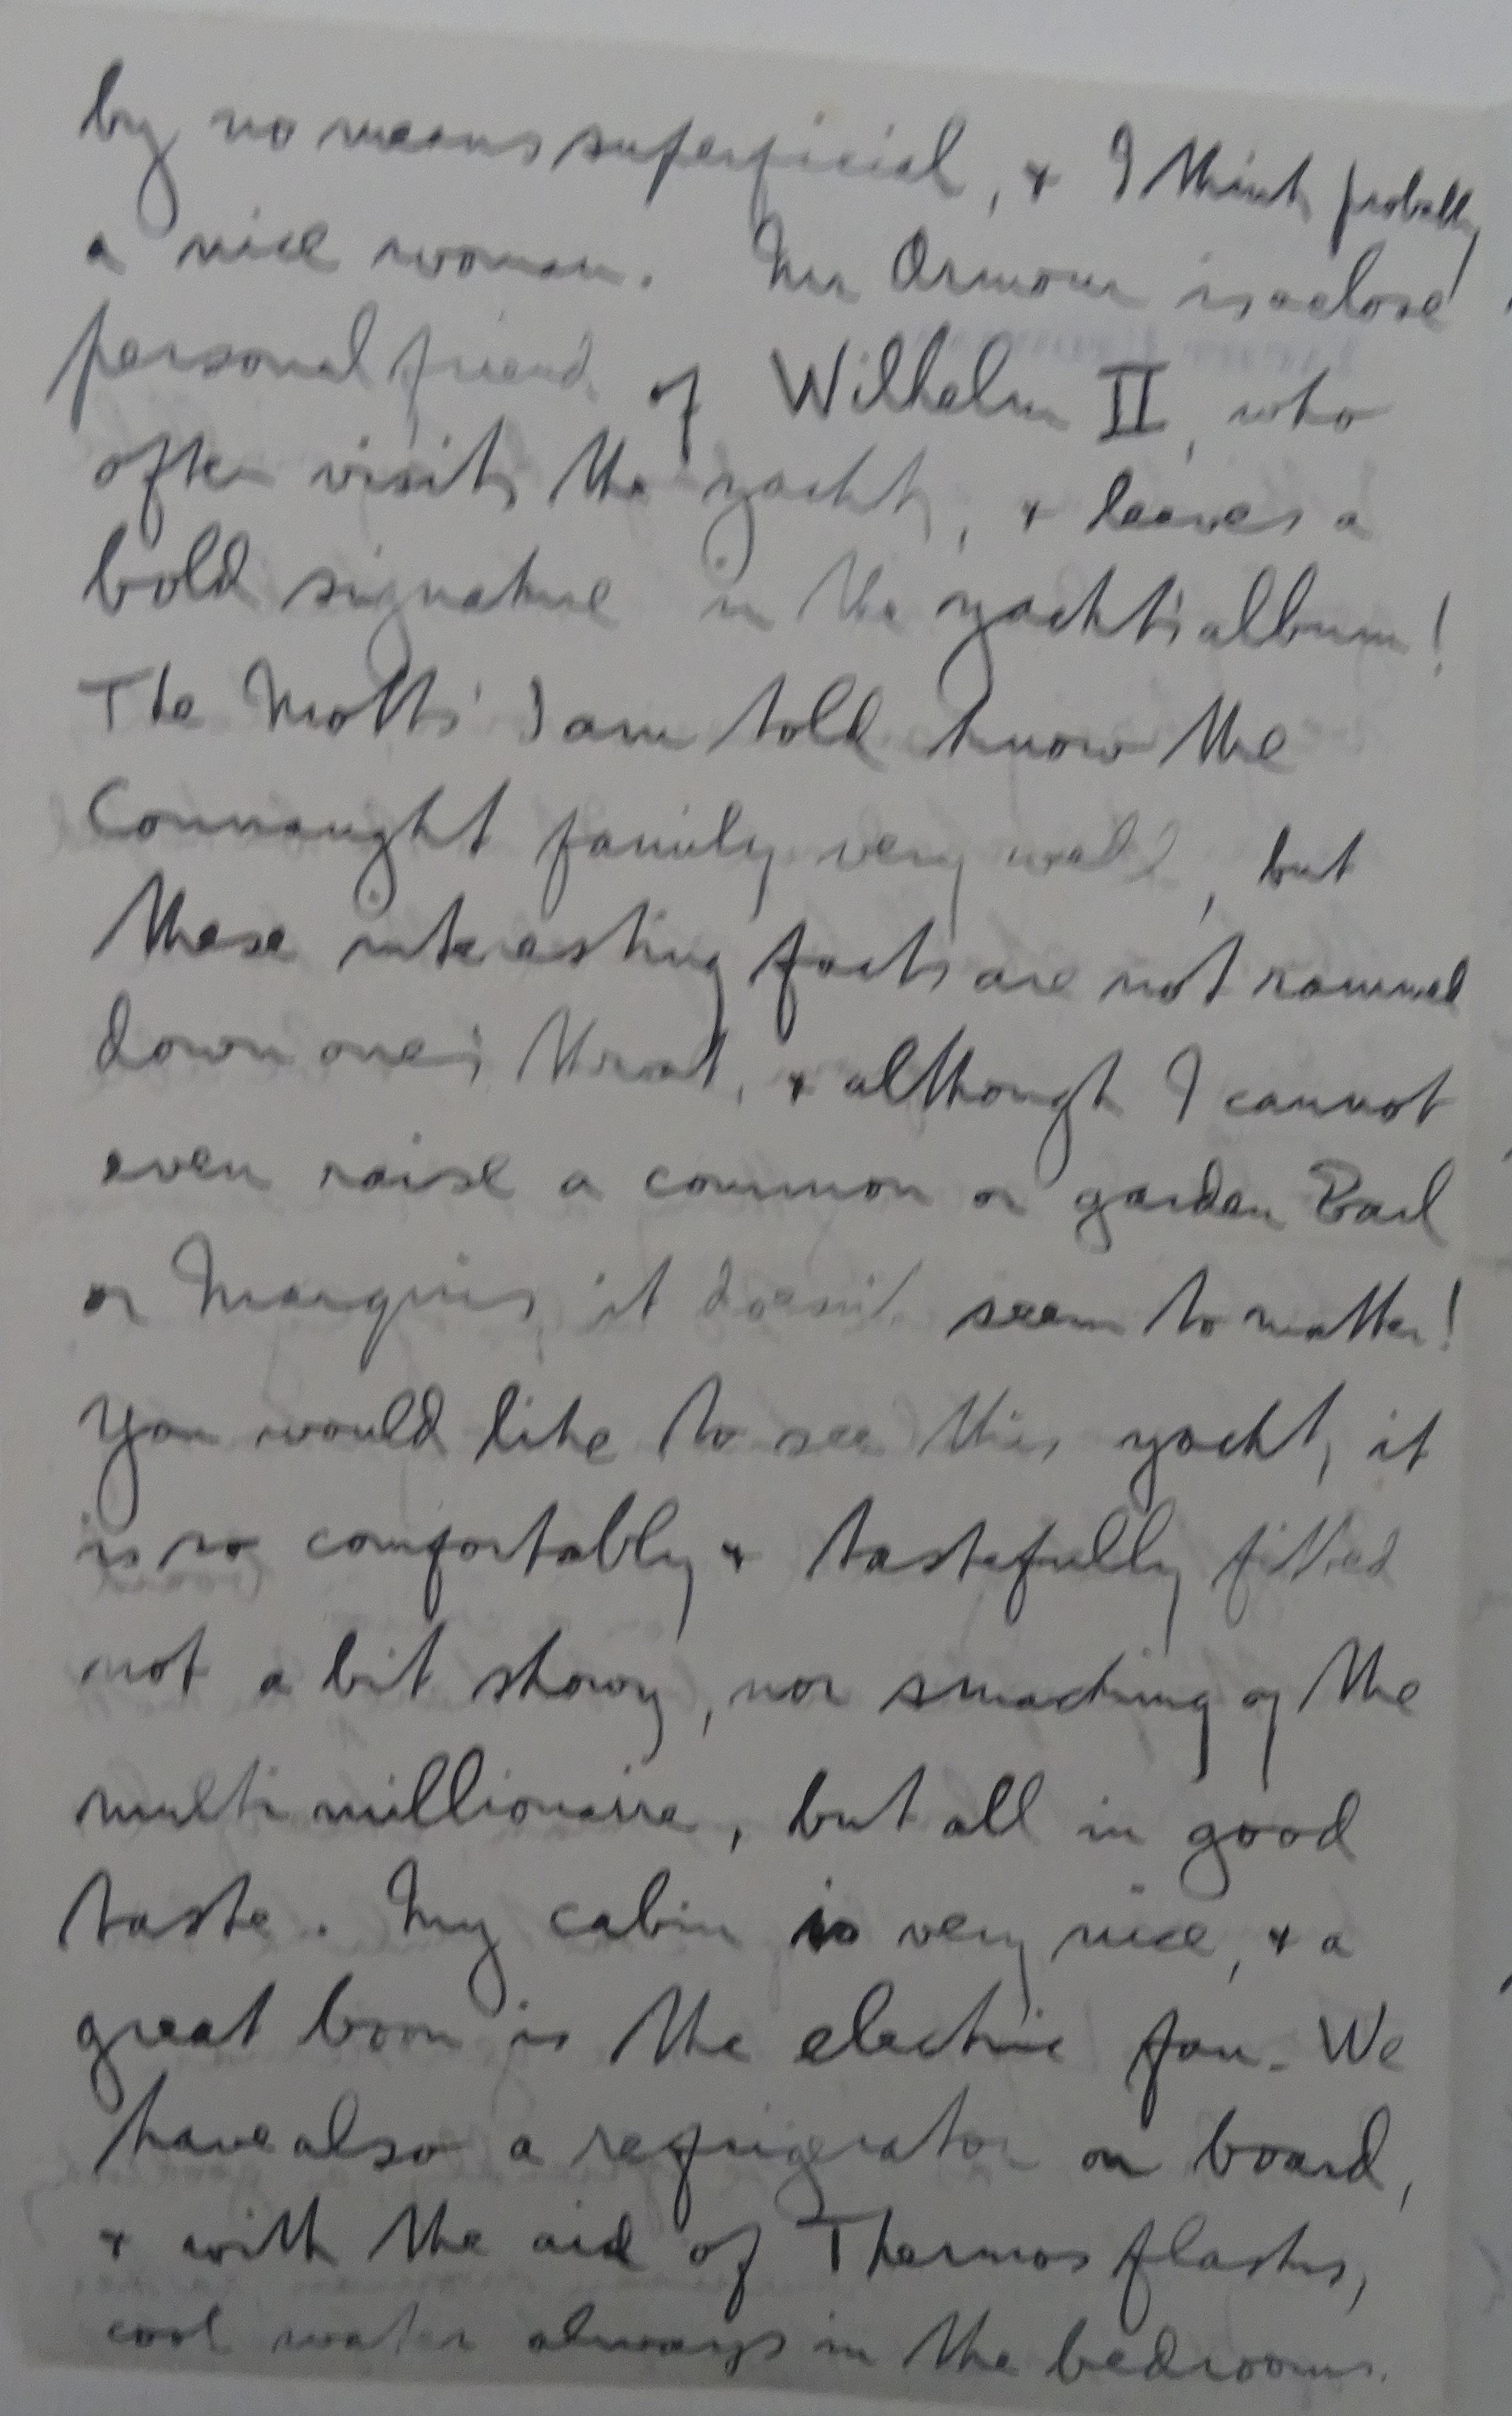 by no means superficial, & I think probably
a nice woman. Mr Armour is a close
personal friend of Wilhelm II, who
often visits the yacht, & leaves a
bold signature in the yacht's album!
The Motts' I am told know the
Connaught family very well, but
these interesting facts are not rammed
down one's throat, & although I cannot
even raise a common or garden Earl
or Marquis, it doesn't seem to matter!
You would like to see this yacht, it
is so comfortably & tastefully fitted
not a bit showy, nor smacking of the
multi millionaire, but all in good
taste. My cabin is very nice, & a
great boon is the electric fan. We
have also a refrigerator on board,
& with the aid of Thermos flasks,
cool water always in the bedrooms.